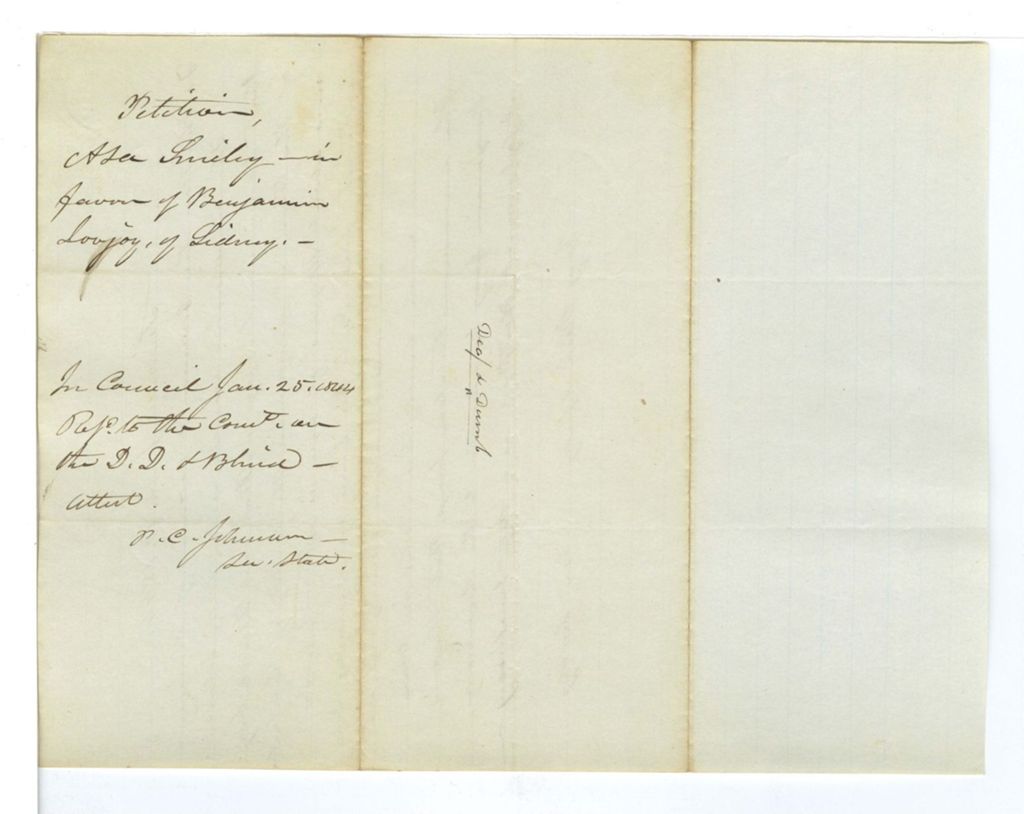 Petition,
Asa Smiley — in
favor of Benjamin
Lovjoy, of Sidney. —
In Council Jan. 25. 1844
Refd. to the Comte. on
the D. D. & Blind —
Attest.
P. C. Johnson —
Sec. State.
Deaf & Dumb